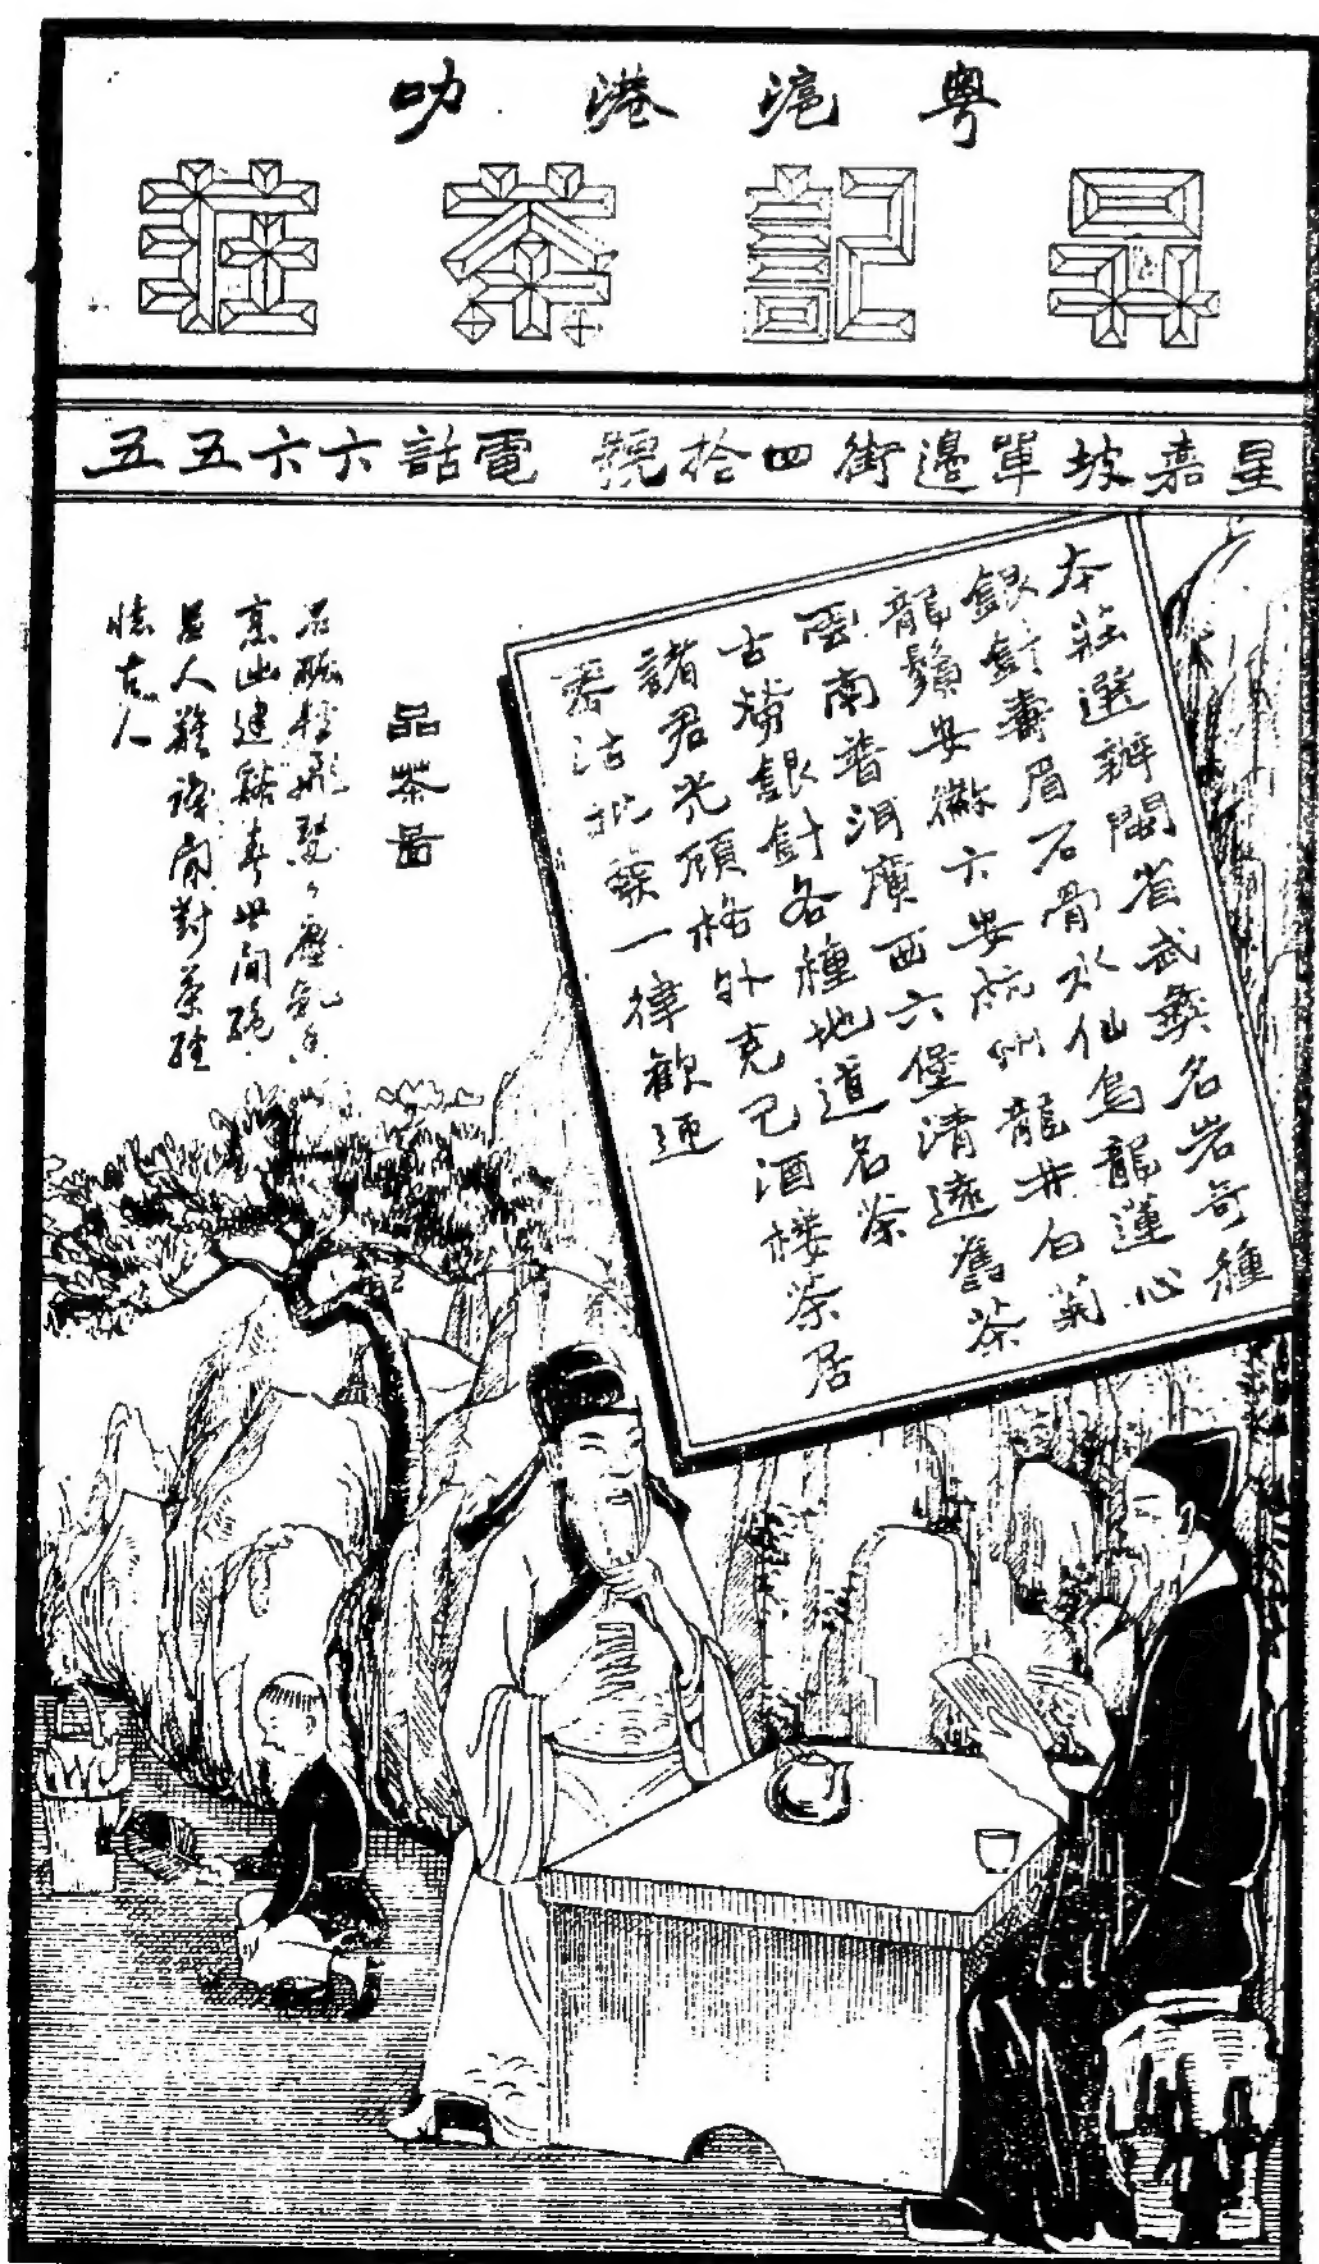 粵滬港叻
記茶莊
星嘉坡單邊街四拾號 電話六六五五
本莊選辦閩省武彝名岩奇種
銀針壽眉石骨水仙烏龍蓮心
龍鬚安徽六安杭州龍井白菊
雲南普洱廣西六堡清遠舊茶
古勞銀針各種地道名茶
諸君光顧格外克己酒楼茶居
零沽批發一律歡迎
品茶圖
石碾輕飛瑟瑟塵乳香
烹出建谿春世間絕
品人難識閒對茶經
憶古人